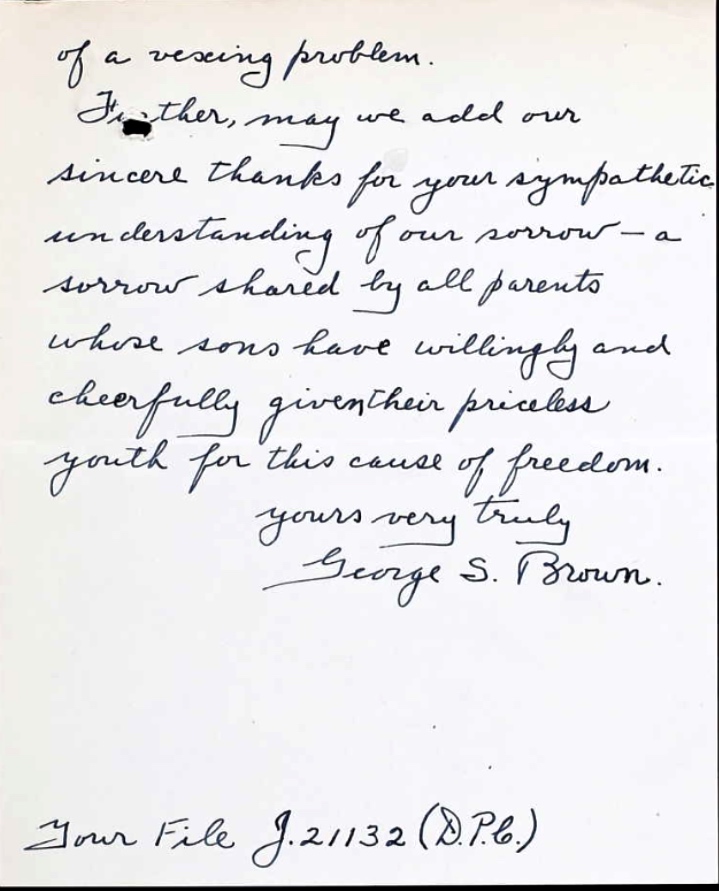 of a vexing problem.
Further, may we add our
sincere thanks for your sympathetic
understanding of our sorrow – a
sorrow shared by all parents
whose sons have willingly and
cheerfully given their priceless
youth for this cause of freedom.
yours very truly
George S. Brown.
Your File J.21132 (D.P.C.)